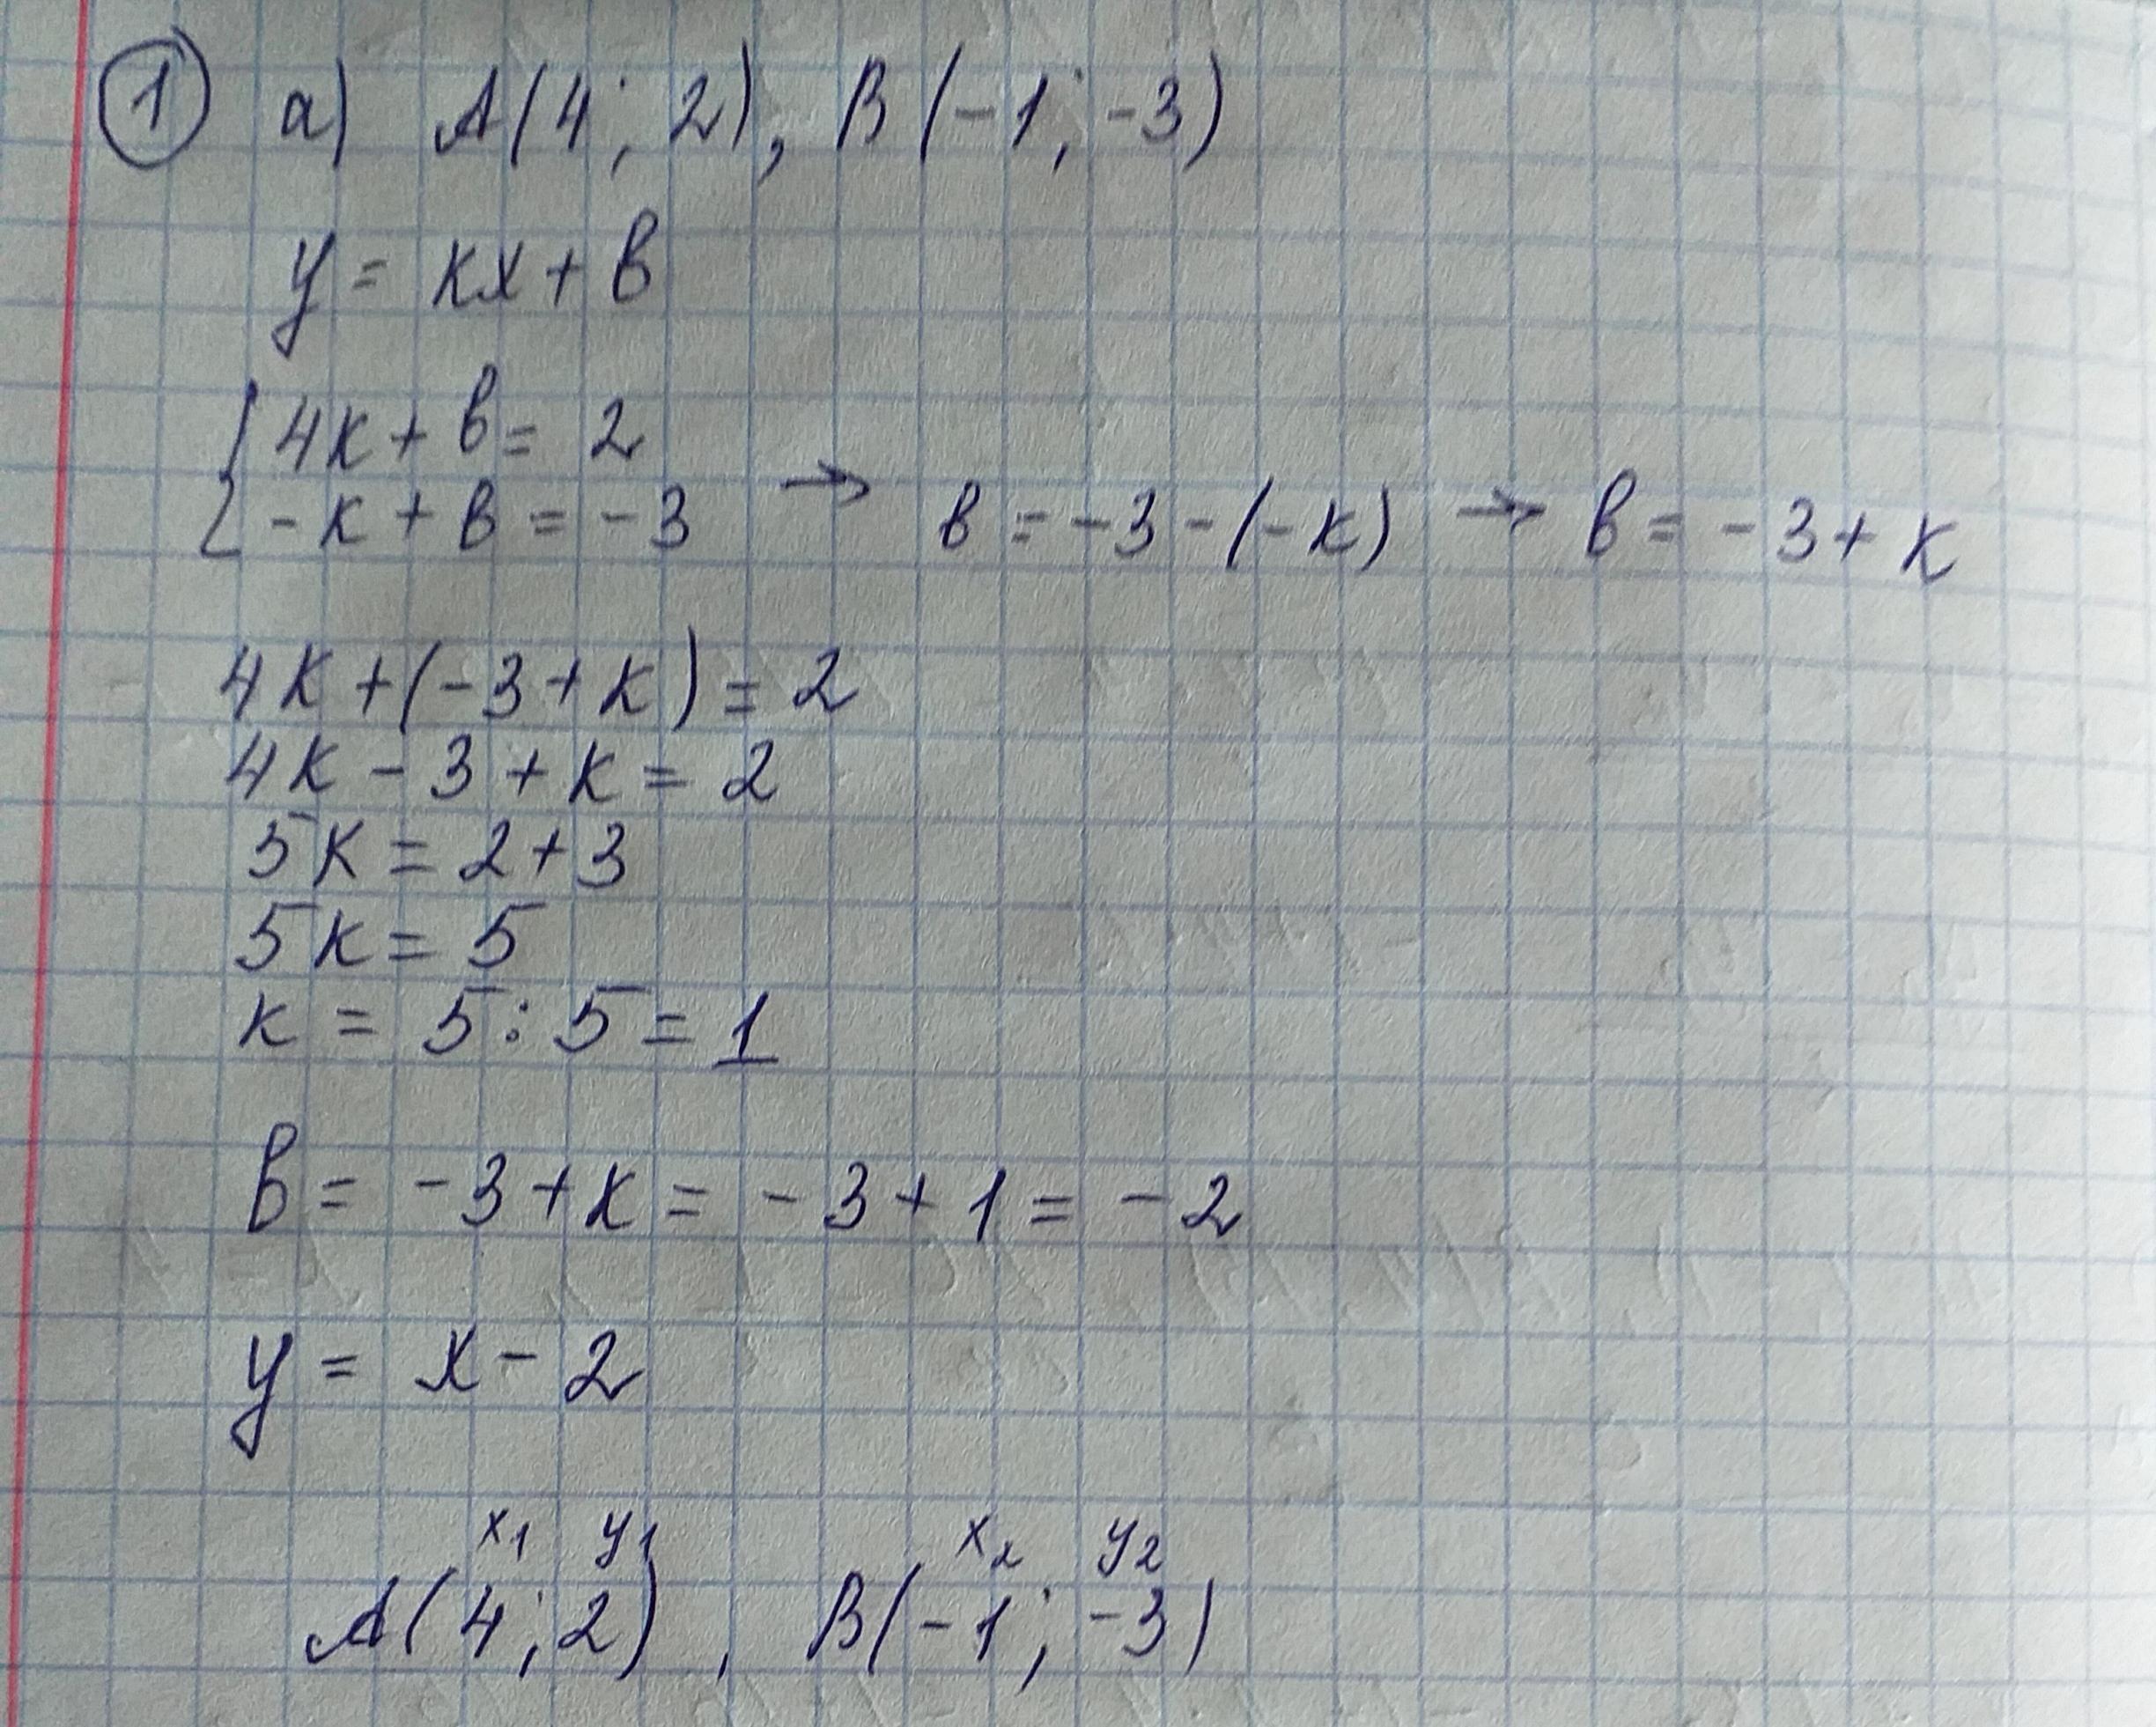 1 а) A(4; 2), B(-1; -3)
y = kx + b
4k + b = 2
-k + b = -3 → b = -3 - (-k) → b = -3 + k
4k + (-3 + k) = 2
4k - 3 + k = 2
5k = 2 + 3
5k = 5
k = 5 : 5 = 1
b = -3 + k = -3 + 1 = -2
y = x - 2
x₁ y₁ x₂ y₂
A(4; 2), B(-1; -3)